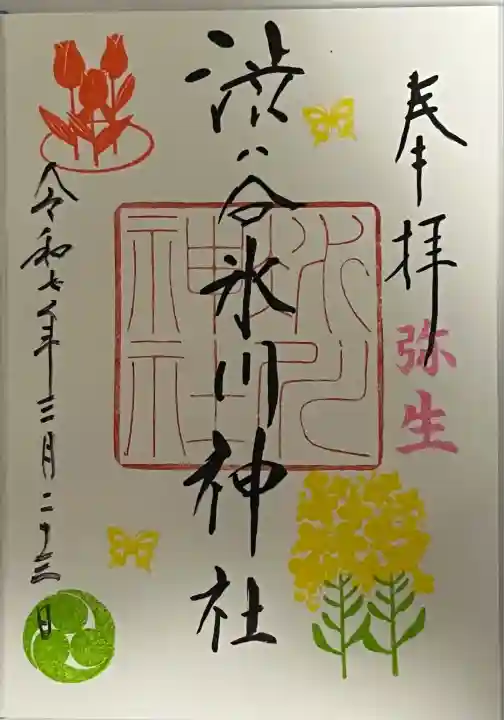 奉拝
弥生
渋谷氷川神社
氷川
神社
令和七年三月二十三日